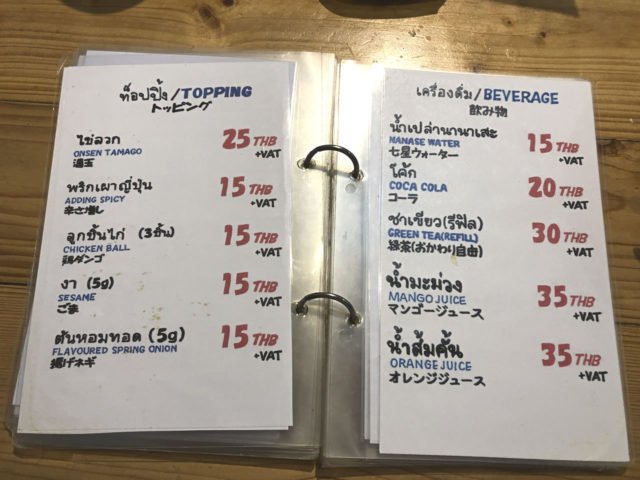 ท็อปปิ้ง/TOPPING
トッピング
ไข่ลวก 25 THB
ONSEN TAMAGO +VAT
温玉
พริกเผาญี่ปุ่น 15 THB
ADDING SPICY +VAT
辛さ増し
ลูกชิ้นไก่ (3ชิ้น) 15 THB
CHICKEN BALL +VAT
鶏ダンゴ
งา (5g) 15 THB
SESAME +VAT
ごま
ต้นหอมทอด (5g) 15 THB
FLAVOURED SPRING ONION +VAT
揚げネギ
เครื่องดื่ม/BEVERAGE
飲み物
น้ำเปล่านานาเสะ 15 THB
NANASE WATER +VAT
七星ウォーター
โค้ก 20 THB
COCA COLA +VAT
コーラ
ชาเขียว(รีฟิล) 30 THB
GREEN TEA(REFILL) +VAT
緑茶(おかわり自由)
น้ำมะม่วง 35 THB
MANGO JUICE +VAT
マンゴージュース
น้ำส้มคั้น 35 THB
ORANGE JUICE +VAT
オレンジジュース